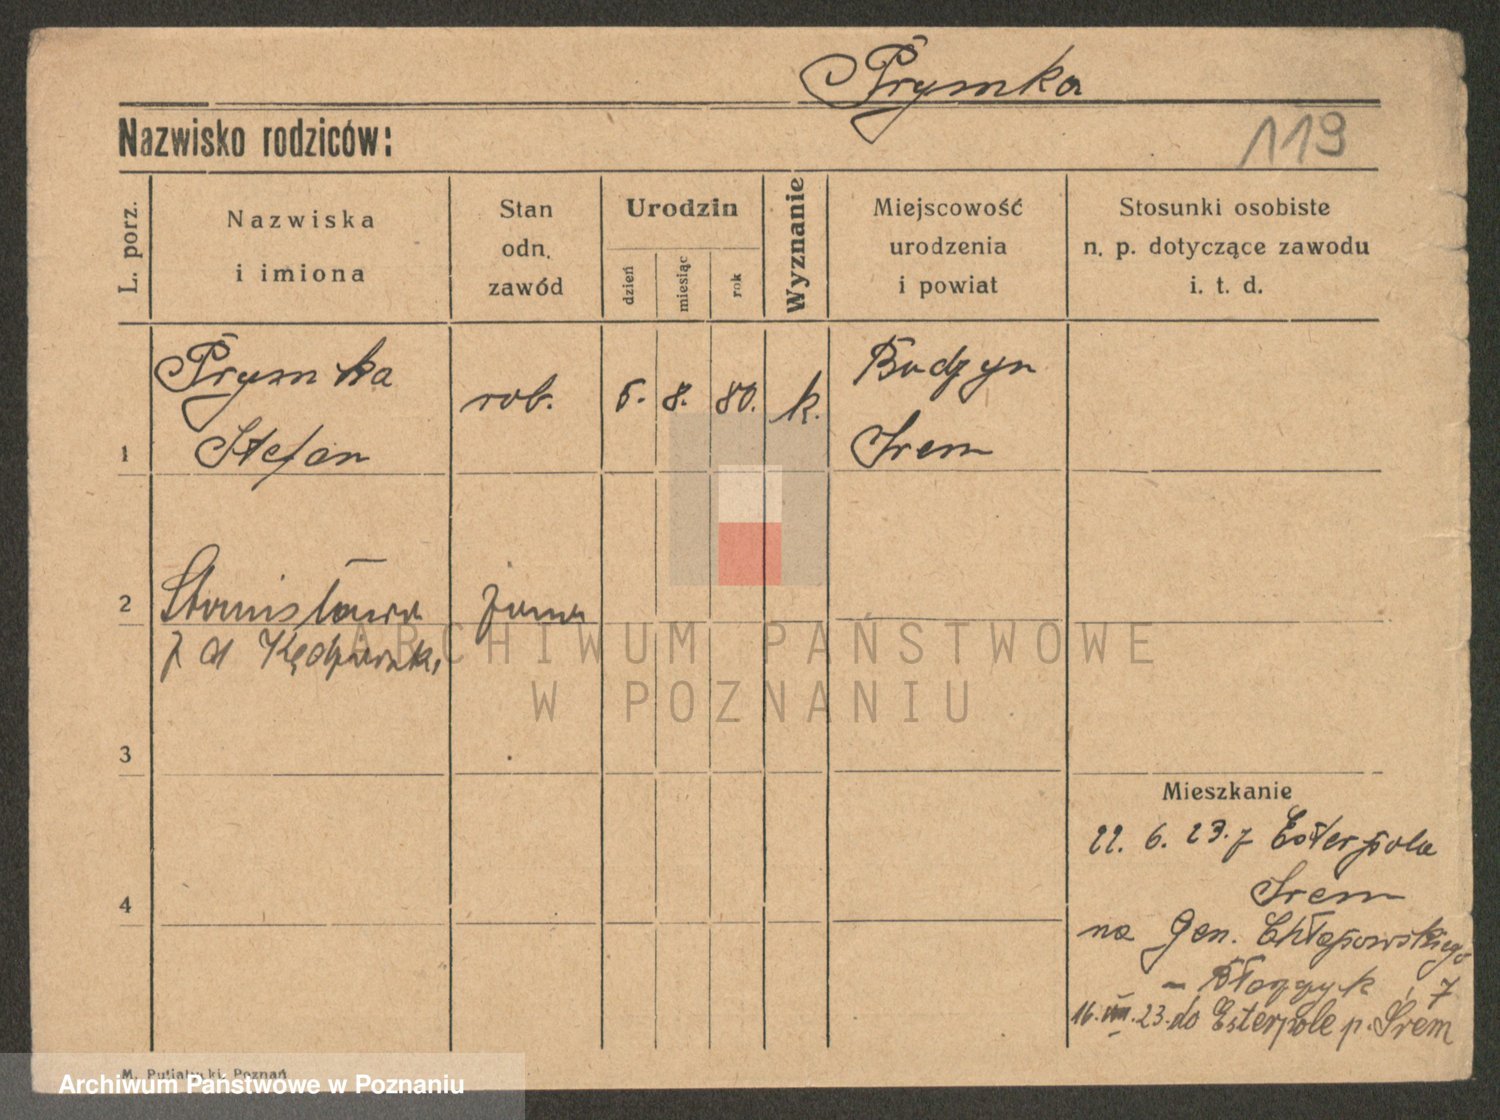 Prymka
Nazwisko rodziców:
119
L. porz.
Nazwiska
i imiona
Stan
odn.
zawód
Urodzin
dzień
miesiąc
rok
Wyznanie
Miejscowość
urodzenia
i powiat
Stosunki osobiste
n. p. dotyczące zawodu
i. t. d.
1
Prymka
Stefan
rob.
5. 8. 80.
k.
Budzyn
Srem
2
Stanisława
z d
żona
3
4
Mieszkanie
22. 6. 23. z Esterpola
Srem
na Gen. Chłapowskiego
7
16. VIII. 23. do Esterpole p. Srem
ARCHIWUM PAŃSTWOWE
W POZNANIU
M. Putiatycki, Poznań
Archiwum Państwowe w Poznaniu